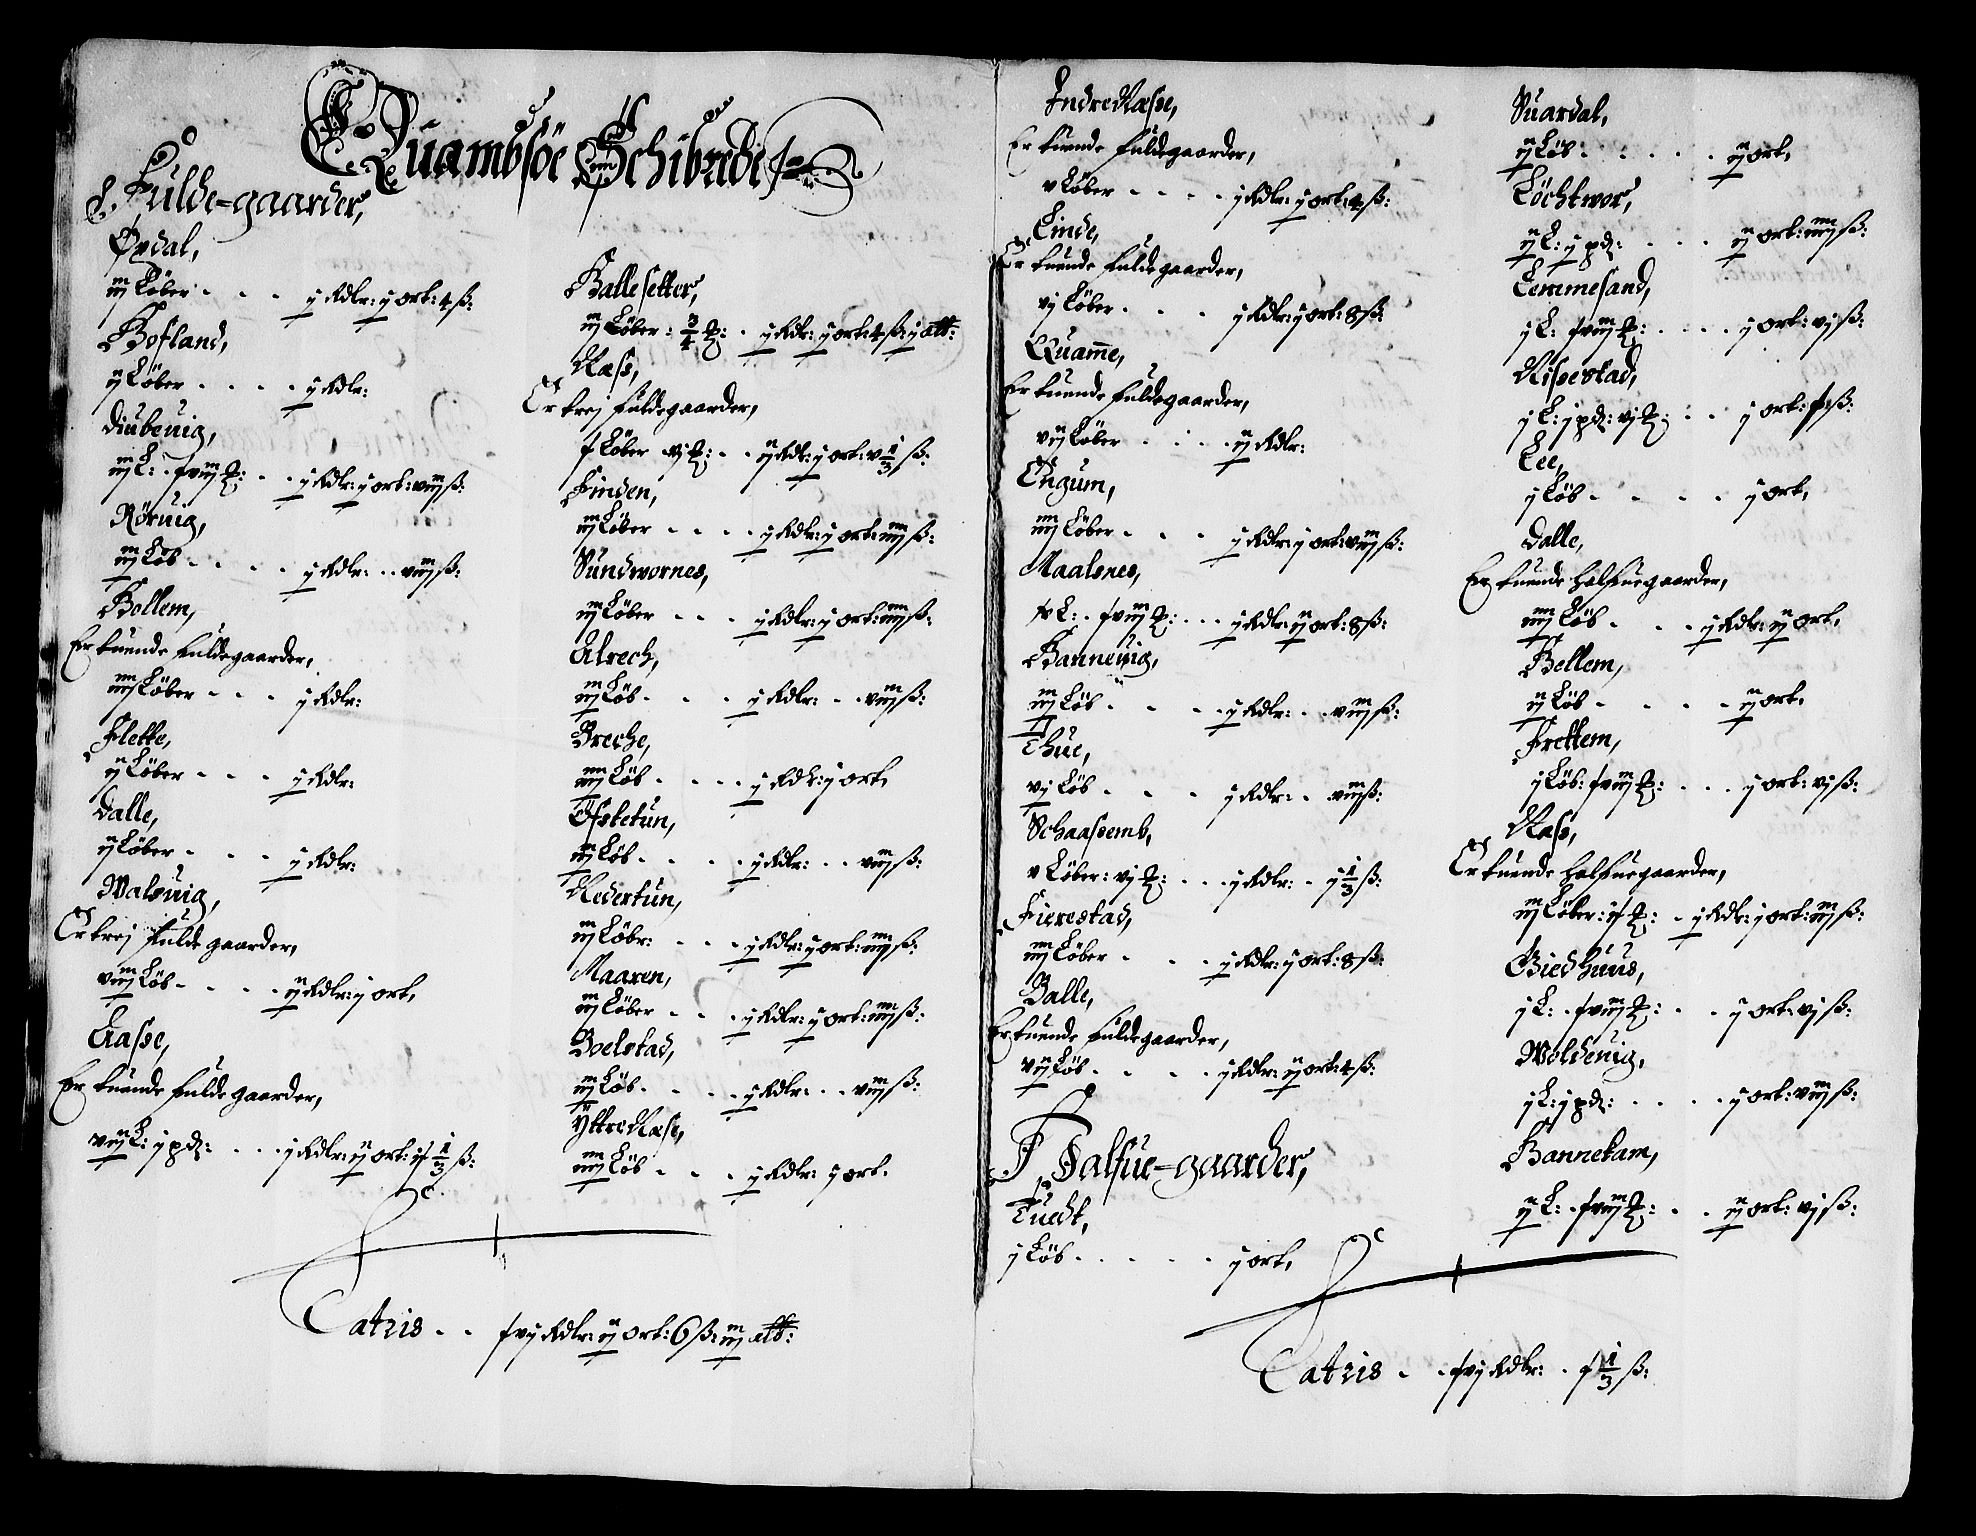 Quambsöe Schibrede
Fulde-gaarder,
Öydal,
iij Löber . . . j Rdlr: j ort: 4 ß:
Hofland,
ij Löber . . . . j Rdlr:
Diubeuig,
iij L: xviij [?]: . . j Rdlr: j ort: viij ß:
Röruig,
iij Löb . . . . j Rdlr: . . viij ß:
Bollem,
Er tuende fuldegaarder,
iiij Löber . . . j Rdlr:
Flette,
ij Löber . . . j Rdlr:
Dalle,
ij Löber . . . j Rdlr:
Walsuig,
Er trej fulde gaarder,
viij Löb . . . . ij Rdlr: j ort,
Aasse,
Er tuende fulde gaarder,
vij L: j pd: . . . j Rdlr: ij ort: ix 1/3 ß:
Ballesetter,
iij Löber: 3/4 . j Rdlr: j ort 4 ß: j alb:
Næss,
Er trej fuldegaarder,
x Löber vj . . ij Rdlr: j ort: v 1/3 ß:
Finden,
iij Löber . . . . j Rdlr: j ort: iiij ß:
Sundwornes,
iij Löber . . . j Rdlr: j ort: iiij ß:
Alrech,
iij Löb . . . . j Rdlr: . . viij ß:
Breche,
iiij Löb . . . . j Rdlr: j ort,
Öfstetun,
iij Löb . . . . j Rdlr: . . viij ß:
Nedertun,
iij Löbr: . . . j Rdlr: j ort: iiij ß:
Maaren,
iij Löber . . . j Rdlr: j ort: iiij ß:
Boelstad,
iij Löb . . . . j Rdlr: . . viij ß:
Yttre Næse,
iiij Löb . . . . j Rdlr: j ort.
Latris . . xvj Rdlr: ij ort: 6 ß: iij alb:
Indre Næsse,
Er tuende fuldegaarder,
v Löber . . . . j Rdlr: j ort 4 ß:
Linde,
Er tuende fuldegaarder,
vj Löber . . . . j Rdlr: j ort: 8 ß:
Quame,
Er tuende fuldegaarder,
vij Löber . . . . ij Rdlr:
Engum,
iiij Löber . . . j Rdlr: j ort: viij ß:
Maalsnes,
iv L: . xviij . . . j Rdlr: ij ort: 8 ß:
Banneuig,
iij Löb . . . . j Rdlr: . . viij ß:
Thue,
vj Löb . . . j Rdlr: . viij ß:
Schaassemb,
v Löber: vj . . . j Rdlr: . j 1/3 ß:
Fierestad,
iiij Löber . . . j Rdlr: j ort: 8 ß:
Balle,
Er tuende fuldegaarder,
vij Löb . . . . j Rdlr: ij ort 4 ß:
Halfue-gaarder,
Tuedt,
j Löb . . . . . j ort,
Suardal,
ij Löb . . . . . ij ort,
Löchtwor,
ij L: j pd: . . . ij ort: iiij ß:
Lemmesand,
j L: xviij . . . . j ort: vj ß:
Nissestad,
j L: j pd: vj . . . j ort: ix ß:
Lee,
j Löb . . . . j ort,
Dalle,
Er tuende halfuegaarder,
iiij Löb . . . j Rdlr: ij ort.
Bellem,
ij Löb . . . . ij ort.
Frettem,
j Löb: xviij . . . j ort: vj ß:
Næss,
Er tuende halfuegaarder,
iij Löber: ix . j Rdlr: j ort: iiij ß:
Giedhuus,
j L: . xviij . . j ort: vj ß:
Woldeuig,
j L: j pd: . . . . j ort: viij ß:
Bannekam,
ij L: . xviij . . ij ort: vj ß:
Latris . . xvj Rdlr: . x 1/3 ß: